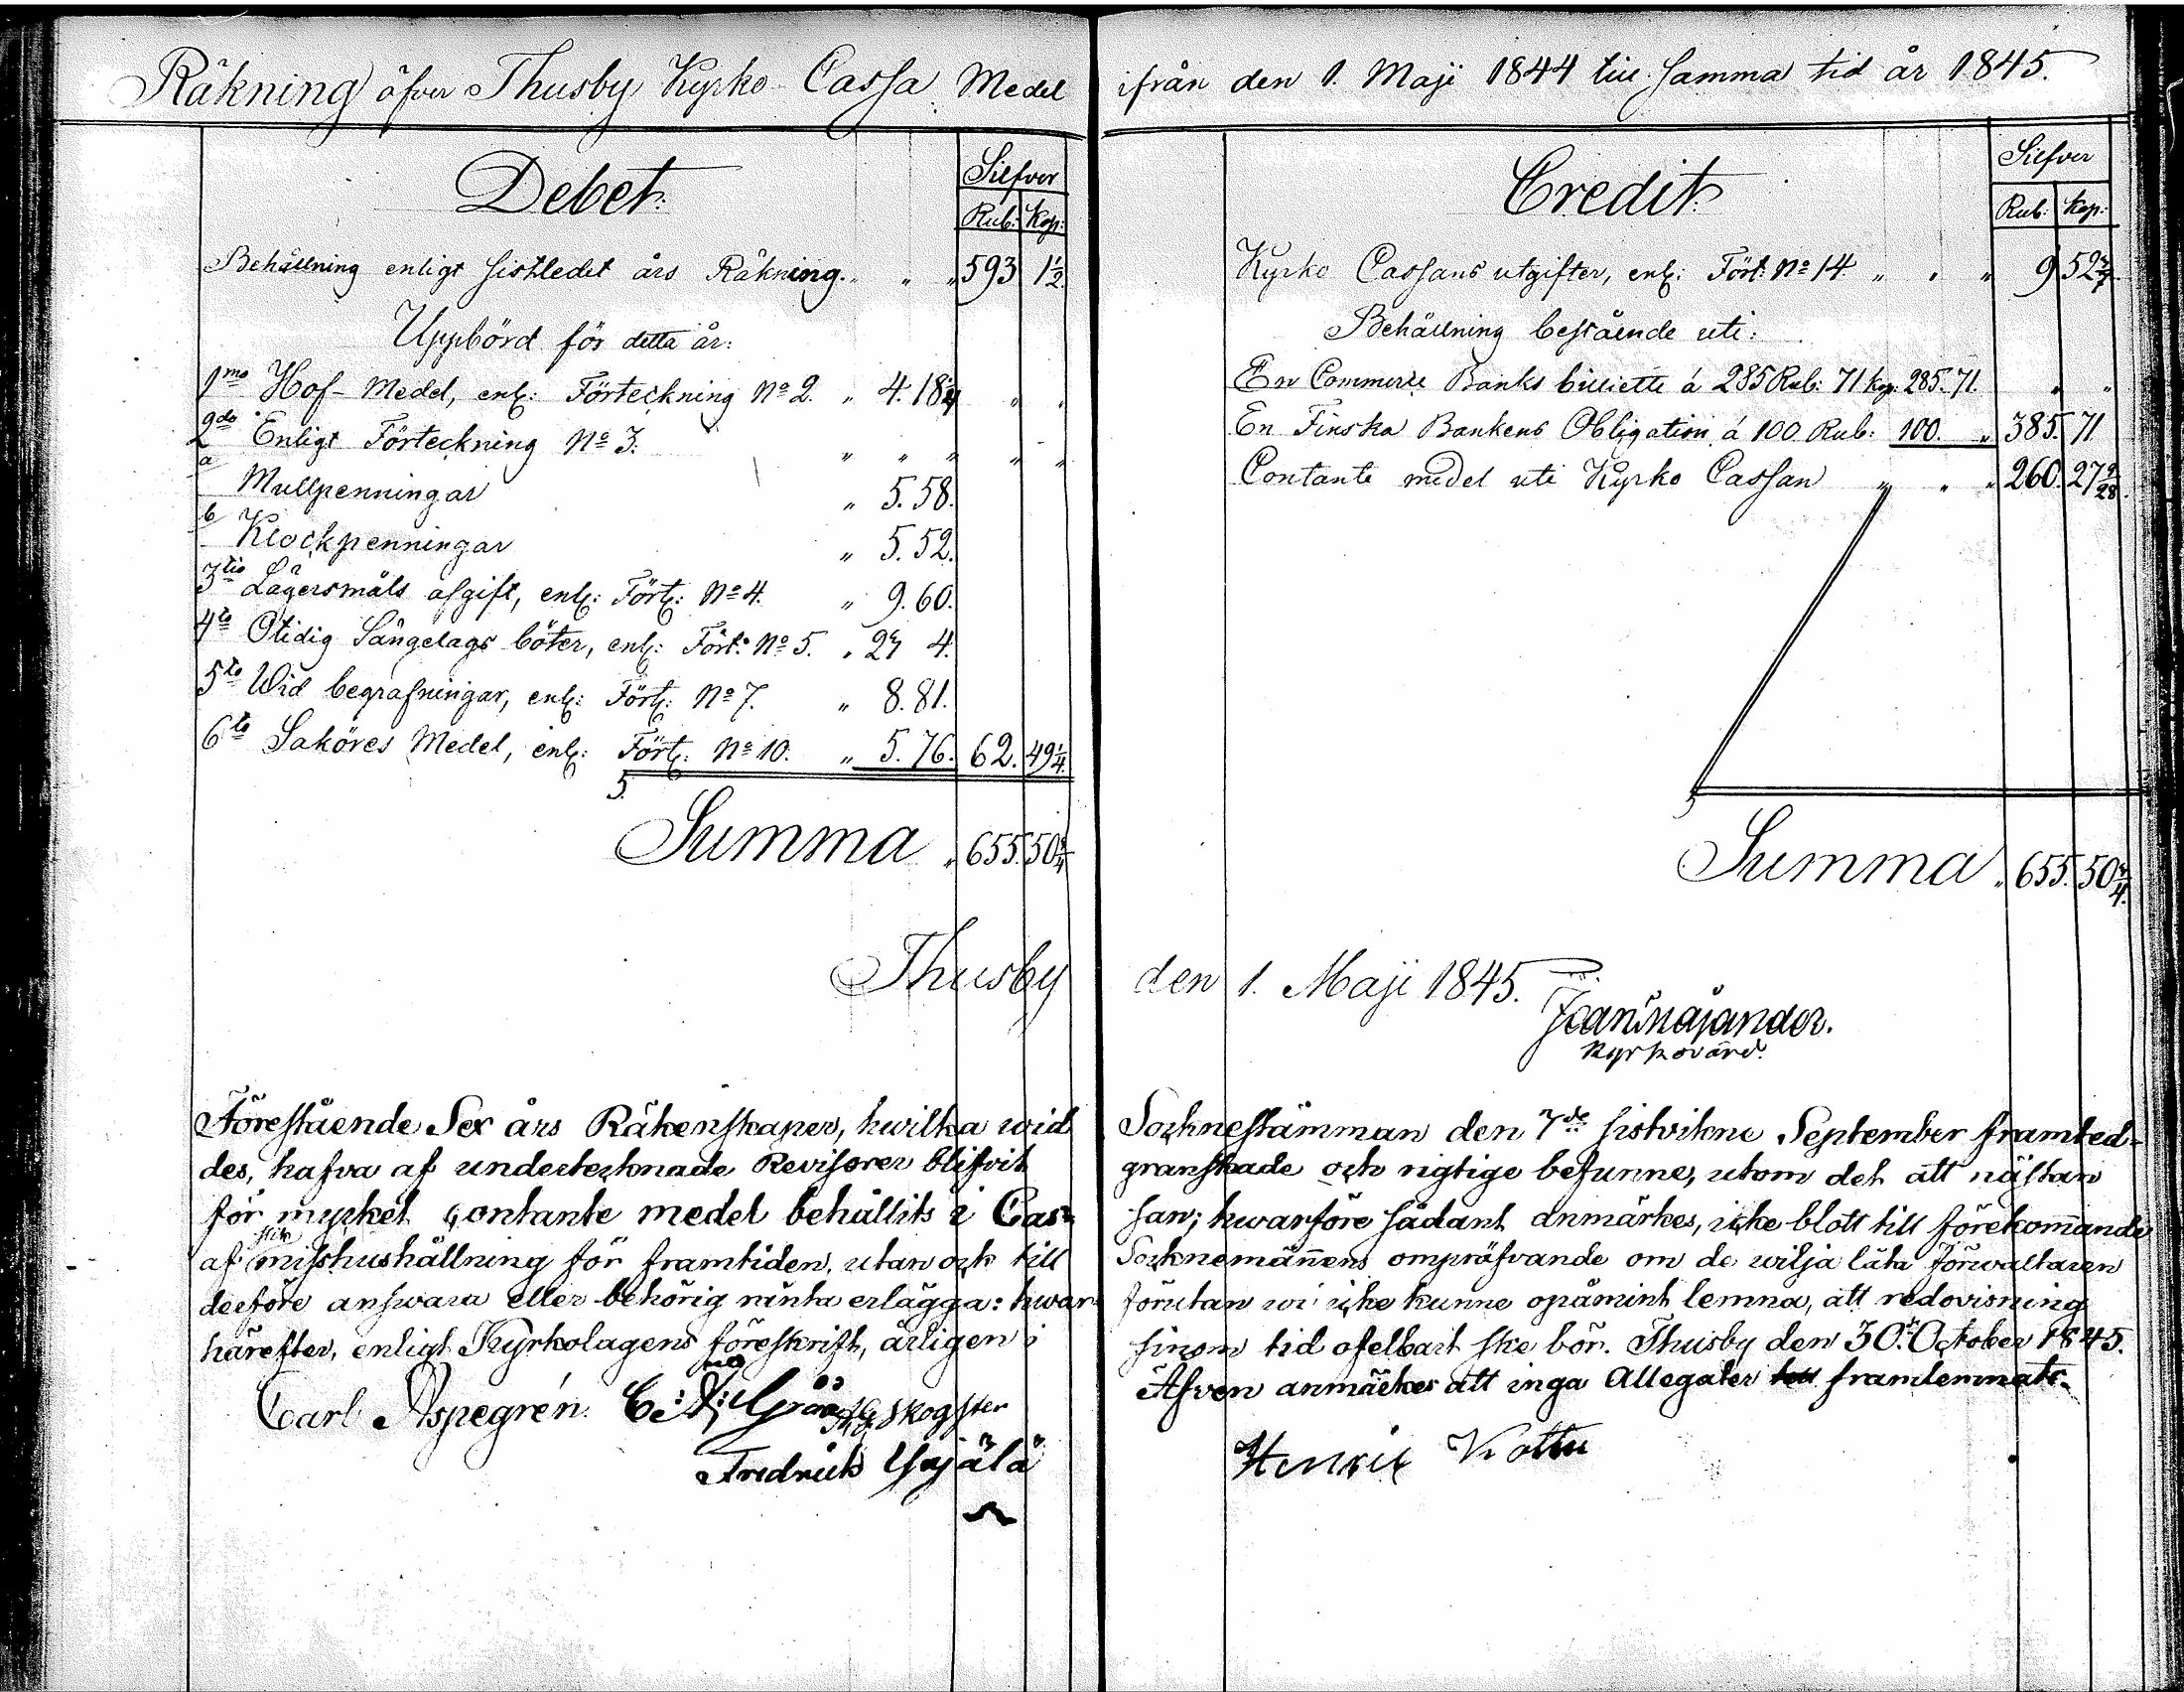 Räkning öfver Thusby Kyrko Cassa Medel ifrån den 1. Maji 1844 till samma tid år 1845.
Debet.
Silfver
Rub: Kop:
Behållning enligt sistledet års Räkning. " " " 593 1 1/2.
Uppbörd för detta år:
1mo Hof-Medel, enl: Förteckning No 2. " 4. 18 1/4 " "
2do Enligt Förteckning No 3. " " " " "
a Mullpenningar " 5. 58.
b Klockpenningar " 5. 52.
3tio Lägersmåls afgift, enl: Fört: No 4. " 9. 60.
4to Otidig Sängelags böter, enl: Fört: No 5. " 23 4.
5to Wid begrafningar, enl: Fört: No 7. " 8. 81.
6to Saköres Medel, enl: Fört: No 10. " 5. 76. 62. 49 1/4.
Summa " 655. 50 3/4
Credit
Silfver
Rub: Kop:
Kyrko Cassans utgifter, enl: Fört: No 14 " " " 9 52 3/7
Behållning bestående uti:
En Commerce Banks billiette á 285 Rub: 71 kop. 285. 71. " "
En Finska Bankens Obligation á 100 Rub: 100. " 385. 71
Contante medel uti Kyrko Cassan " " " 260. 27 9/28.
Summa " 655. 50 3/4.
Thusby den 1. Maji 1845.
Kyrkovärd.
Förestående Sex års Räkenskaper, hwilka wid Socknestämman den 7de sistvikne September framted-
des, hafva af undertecknade Revisorer blifvit granskade och rigtige befunne, utom det att nästan
för mycket contante medel behållits i Cas- san; hwarföre sådant anmärkes, icke blott till förekommande
af misshushållning för framtiden, utan ock till Socknemännens ompröfvande om de wilja låta Förwaltaren
derföre answara eller behörig ränta erlägga: hwar- förutan wi icke kunne opåmint lemna, att redovisning
härefter, enligt Kyrkolagens föreskrift, årligen i sinom tid ofelbart ske bör. Thusby den 30. October 1845.
Äfven anmärkes att inga Allegater framlemnats.
Carl Aspegrén.
Fredrick
Henrik